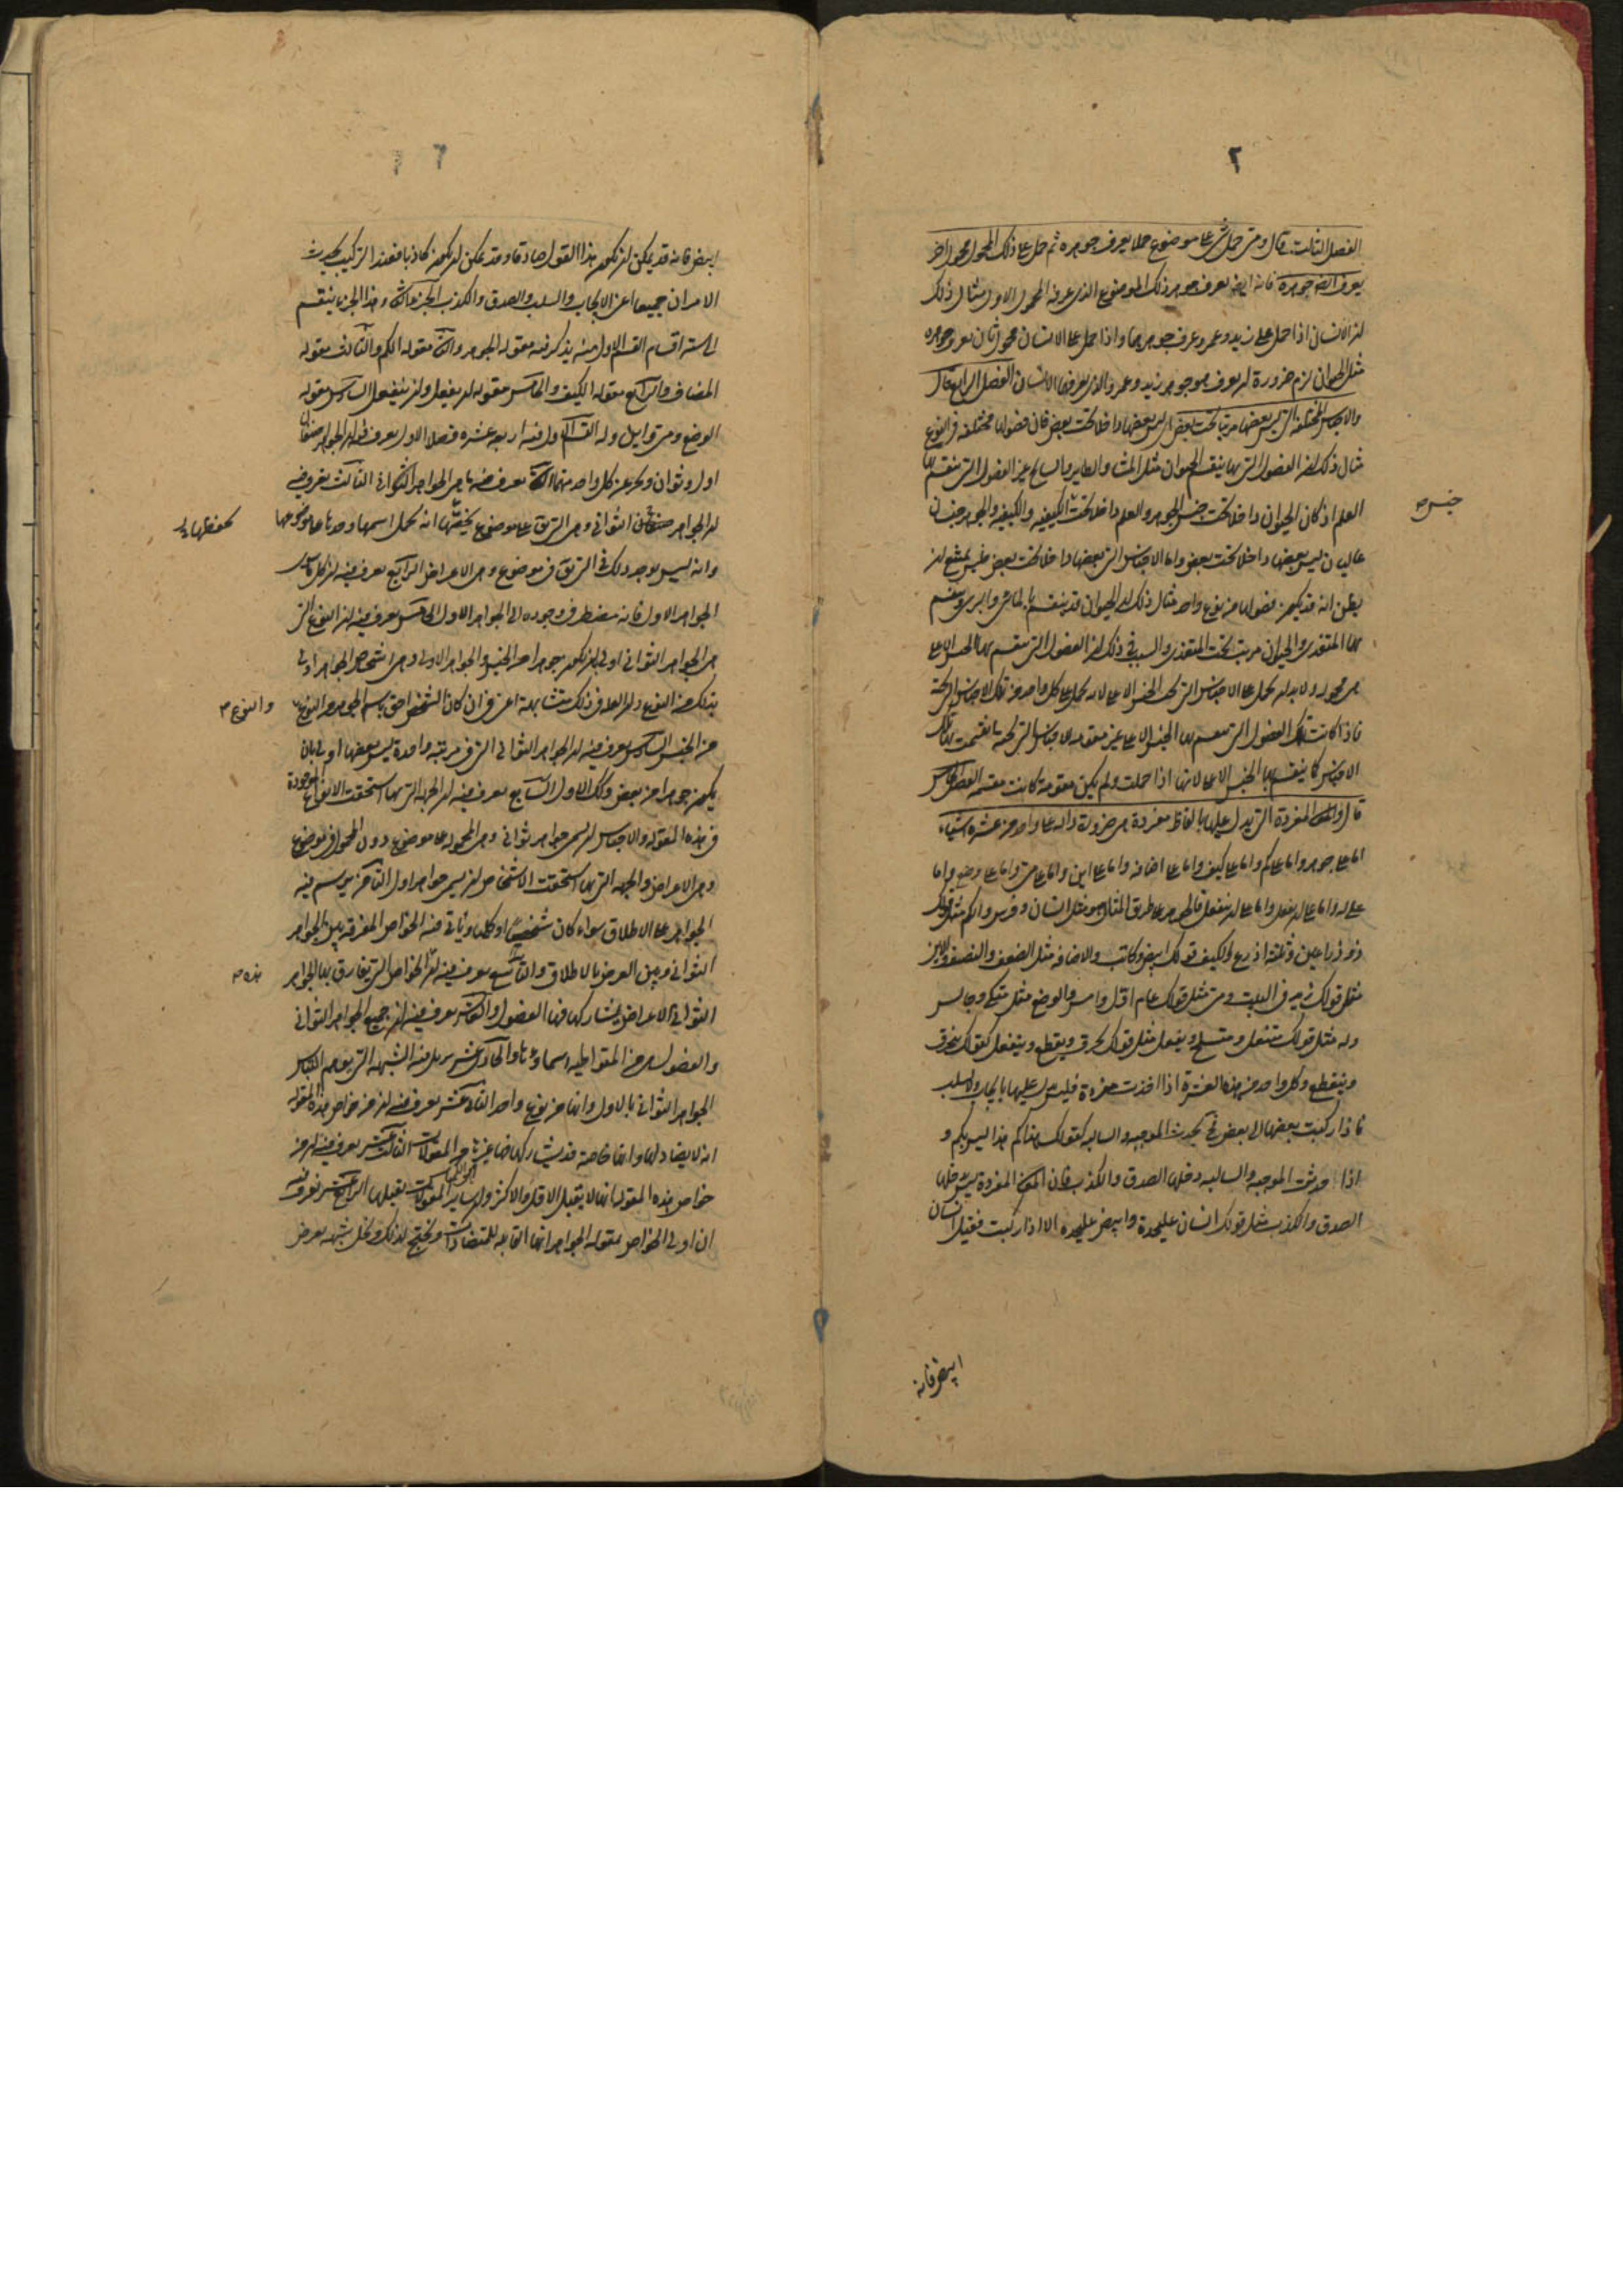 ٢
الفصل الثالث قال ومتى حمل شئ على موضوع حملا يعرف جوهره ثم حمل على ذلك المحمول محمول اخر
يعرف ايضا جوهره فانه ايضا يعرف جوهر ذلك الموضوع الذي عرفه المحمول الاول مثال ذلك
ان الانسان اذا حمل على زيد وعمرو عرف جوهرهما واذا حمل على الانسان محمول ثان يعرف جوهره
مثل الحيوان لزم ضرورة ان يعرف جوهر زيد وعمرو الذي يعرفها الانسان الفصل الرابع قال
والاجناس المختلفة التي ليس بعضها مرتبا تحت بعض اي ليس بعضها داخلا تحت بعض فان فصولها مختلفة في النوع
مثال ذلك ان الفصول التي بها ينقسم الحيوان مثل المشاء والطاير والسابح غير الفصول التي ينقسم بها
العلم اذ كان الحيوان داخلا تحت جنس الجوهر والعلم داخلا تحت الكيفية والكيفية والجوهر جنسان
جنس صح
عاليان ليس بعضها داخلا تحت بعض واما الاجناس التي بعضها داخلا تحت بعض فليس يمتنع ان
يظن انه قد يكون فصولها من نوع واحد مثال ذلك ان الحيوان قد ينقسم بالمائي والبري وينقسم
بها المتغذي والحيوان مرتب تحت المتغذي والسبب في ذلك ان الفصول التي ينقسم بها الجنس الاعلى
هي محمولة ولا بد ان تحمل على الاجناس التي تحت الجنس الاعلى لانه يحمل على كل واحد من تلك الاجناس التي تحته
فاذا كانت تلك الفصول التي تقسم بها الجنس الاعلى غير مقومة للاجناس التي تحته انقسمت بها تلك
الاجناس كما ينقسم بها الجنس الاعلى لانها اذا حملت ولم يكن مقومة كانت مقسمة الفصل الخامس
قال والمعاني المفردة التي يدل عليها بالفاظ مفردة هي ضرورة دالة على واحد من عشرة اشياء
اما على جوهر واما على كم واما على كيف واما على اضافة واما على اين واما على متى واما على وضع واما
على له واما على ان يفعل واما على ان ينفعل فالجوهر على طريق المثال هو مثل انسان وفرس والكم مثل قولك
ذو ذراعين وثلثة اذرع والكيف قولك ابيض وكاتب والاضافة مثل الضعف والنصف والاين
مثل قولك زيد في البيت ومتى مثل قولك عام اول وامس والوضع مثل متكي وجالس
وله مثل قولك منتعل ومتسلح ويفعل مثل قولك يحرق ويقطع وينفعل كقولك ينحرق
وينقطع وكل واحد من هذه العشرة اذا اخذت مفردة فليس يدل عليها بايجاب ولا سلب
فاذا ركبت بعضها الى بعض فح يحدث الموجبة والسالبة كقولك هذا كم هذا ليس بكم و
اذا حدثت الموجبة والسالبة دخلها الصدق والكذب فان المعاني المفردة ليس يدخلها
الصدق والكذب مثل قولك انسان عليحدة وابيض عليحدة الا اذا ركبت فقيل انسان
ابيض فانه
ابيض فانه قد يمكن ان يكون هذا القول صادقا وقد يمكن ان يكون كاذبا فعند التركيب يحدث
الامران جميعا اعني الايجاب والسلب والصدق والكذب الجزء الثاني وهذا الجزء ينقسم
الى ستة اقسام القسم الاول منه يذكر فيه مقولة الجوهر والثاني مقولة الكم والثالث مقولة
المضاف والرابع مقولة الكيف والخامس مقولة ان يفعل وان ينفعل السادس مقولة
الوضع ومتى واين وله القسم الاول وفيه اربعة عشر فصلا الاول يعرف فيه ان الجواهر صنفان
اول وثوان ويحد كل واحد منهما الثاني يعرف فيه ما هي الجواهر الثواني الثالث يعرف فيه
ان الجواهر الثواني وهي التي تقال على موضوع يخصها انه يحمل اسمها وحدها على موضوعها
وانه ليس يوجد ذلك في التي تقال في موضوع وهي الاعراض الرابع يعرف فيه ان كل ما سوى
الجواهر الاول فانه مضطر في وجوده الى الجواهر الاول الخامس يعرف فيه ان النوع التي
هي الجواهر الثواني اولى بان يكون جوهرا من الجنس والجواهر الاولى وهي اشخاص الجواهر اولى
بذلك من النوع وان العلة في ذلك متشابهة اعني في ان كان الشخص احق باسم الجوهر من النوع
والنوع صح
من الجنس السادس يعرف فيه ان الجواهر الثواني التي في مرتبة واحدة ليس بعضها اولى بان
يكون جوهرا من بعض وكذلك الاول السابع يعرف فيه ان الجهة التي بها استحقت الانواع الموجودة
في هذه المقولة والاجناس ان تسمى جواهر ثواني وهي المحمولة على موضوع دون المحمول في موضوع
وهي الاعراض والجهة التي بها استحقت الاشخاص ان يسمى جواهر اول الثامن يرسم فيه
الجواهر على الاطلاق سواء كان شخصيا او كليا وياتي فيه الخواص المفرقة بين الجواهر
الثواني وبين العرض بالاطلاق والتاسع يعرف فيه ان الخواص التي يفارق بها الجواهر
هذه صح
الثواني الاعراض يشاركها فيها الفصول والعاشر يعرف فيه ان جميع الجواهر الثواني
والفصول هي من المتواطية اسماؤها والحادي عشر يزيل فيه الشبهة التي يوهم التباس
الجواهر الثواني بالاول وانها من نوع واحد الثاني عشر يعرف فيه ان من خواص هذه المقولة
انه لا يضاد لها وانها خاصة قد يشاركها فيها غيرها من المقولات الثالث عشر يعرف فيه ان من
خواص هذه المقولة انها لا يقبل الاقل والاكثر وان ساير المقولات يقبلها الرابع عشر يعرف فيه
ان اولى الخواص بمقولة الجواهر انها القابلة للمتضادات ويحتج لذلك ويحل شبهة يعرض